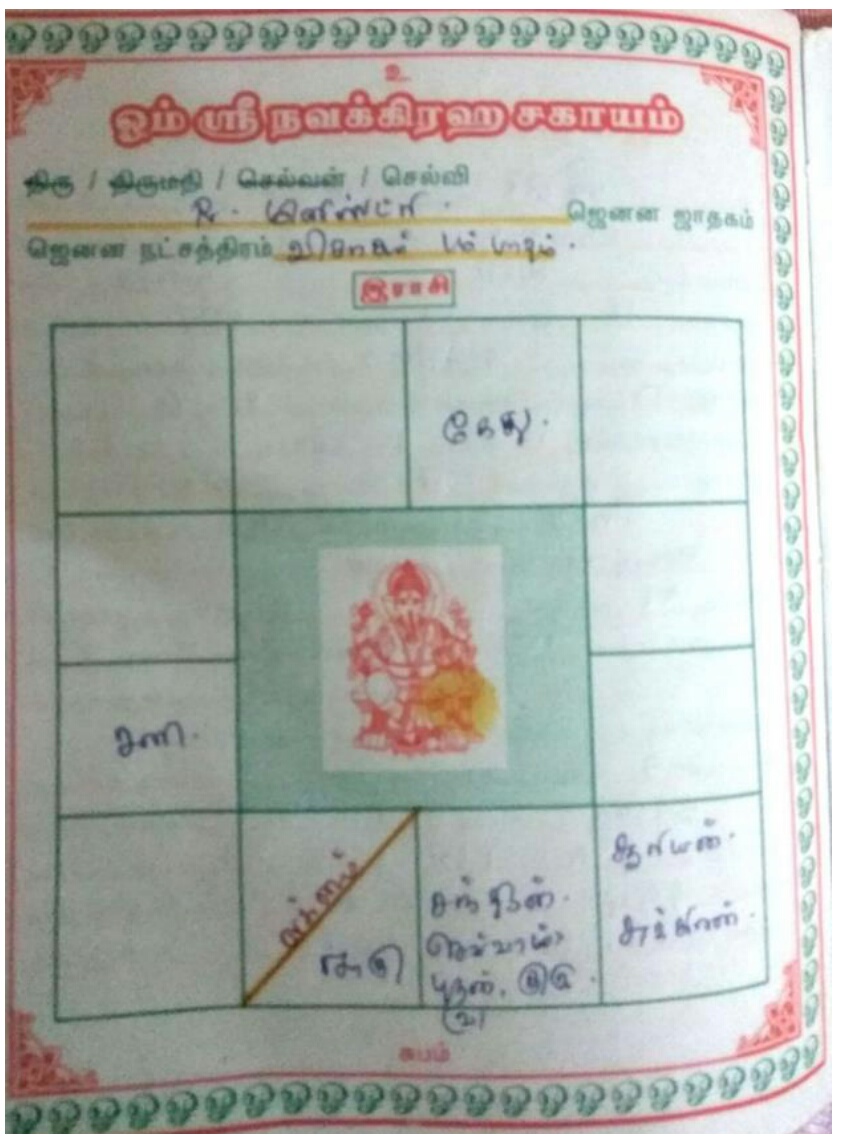 உ
ஓம் ஸ்ரீ நவக்கிரஹ சகாயம்
திரு / திருமதி / செல்வன் / செல்வி
R. ஜெனன ஜாதகம்
ஜெனன நட்சத்திரம் விசாகம் பாதம்.
இராசி
கேது.
சனி.
லக்னம்
ராகு
சந்திரன்.
செவ்வாய்
புதன், குரு
சூரியன்.
சுக்கிரன்.
சுபம்